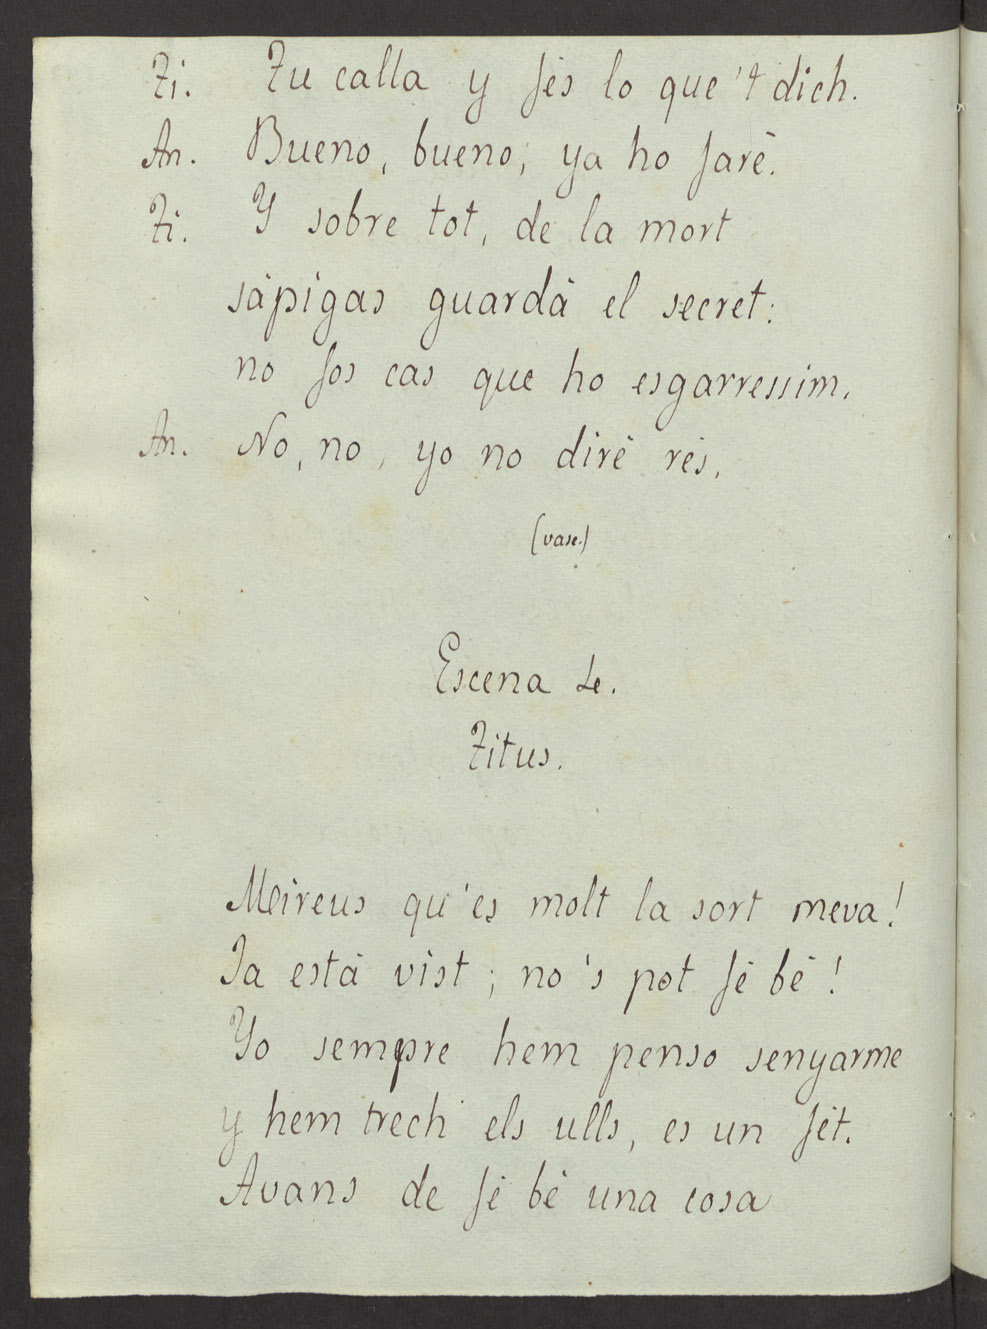 Ti. Tu calla y fés lo que 't dich.
An. Bueno, bueno; ya ho faré.
Ti. Y sobre tot, de la mort
sápigas guardá el secret:
no fos cas que ho esgarressim.
An. No, no, yo no diré rés.
(vase.)
Escena 4.
Titus.
Mireus qu'es molt la sort meva!
Ja está vist; no 's pot fé bé!
Yo sempre hem penso senyarme
y hem trech els ulls, es un fét.
Avans de fé bé una cosa